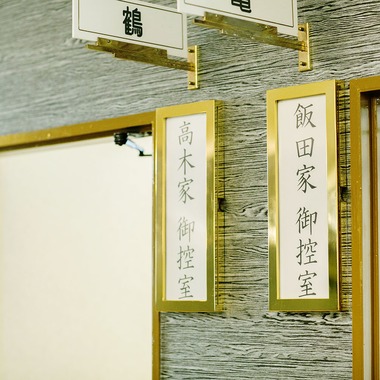 鶴
亀
高木家 御控室
飯田家 御控室